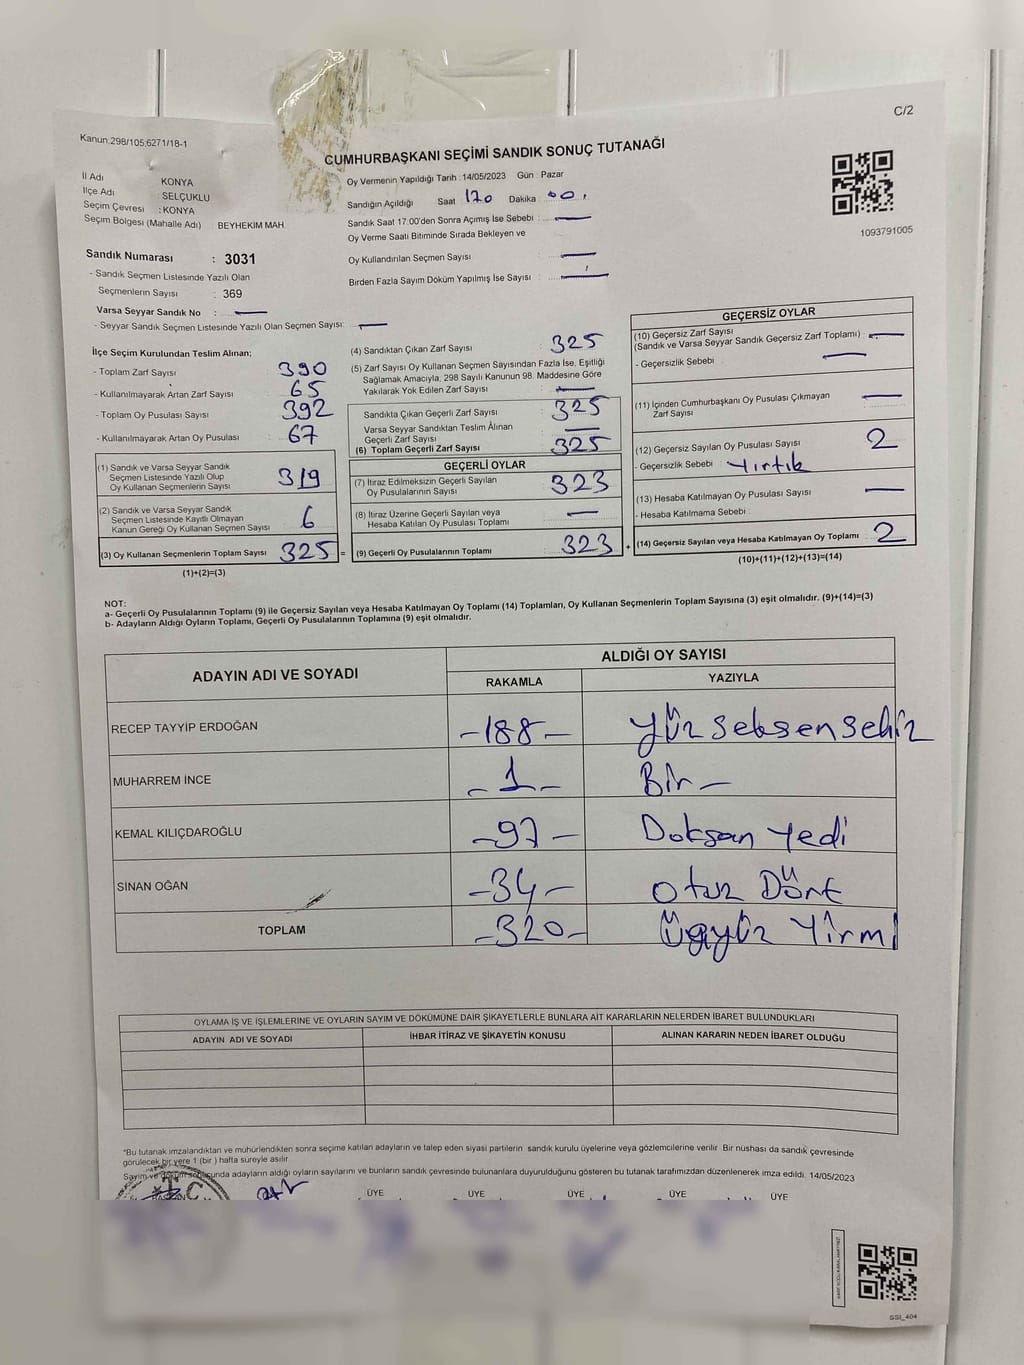 C/2
Kanun:298/105;6271/18-1
CUMHURBAŞKANI SEÇİMİ SANDIK SONUÇ TUTANAĞI
İl Adı KONYA
İlçe Adı : SELÇUKLU
Seçim Çevresi : KONYA
Seçim Bölgesi (Mahalle Adı) : BEYHEKİM MAH
Oy Vermenin Yapıldığı Tarih : 14/05/2023 Gün : Pazar
Sandığın Açıldığı Saat Dakika
Sandık Saat 17.00'den Sonra Açımış İse Sebebi : —
Oy Verme Saati Bitiminde Sırada Bekleyen ve
Oy Kullandırılan Seçmen Sayısı : —
Birden Fazla Sayım Döküm Yapılmış İse Sayısı : —
1093791005
Sandık Numarası : 3031
- Sandık Seçmen Listesinde Yazılı Olan
Seçmenlerin Sayısı : 369
Varsa Seyyar Sandık No : —
- Seyyar Sandık Seçmen Listesinde Yazılı Olan Seçmen Sayısı: —
İlçe Seçim Kurulundan Teslim Alınan;
- Toplam Zarf Sayısı : 390
- Kullanılmayarak Artan Zarf Sayısı : 65
- Toplam Oy Pusulası Sayısı : 392
- Kullanılmayarak Artan Oy Pusulası : 67
(1) Sandık ve Varsa Seyyar Sandık
Seçmen Listesinde Yazılı Olup
Oy Kullanan Seçmenlerin Sayısı : 319
(2) Sandık ve Varsa Seyyar Sandık
Seçmen Listesinde Kayıtlı Olmayan
Kanun Gereği Oy Kullanan Seçmen Sayısı : 6
(3) Oy Kullanan Seçmenlerin Toplam Sayısı : 325 =
(1)+(2)=(3)
(4) Sandıktan Çıkan Zarf Sayısı : 325
(5) Zarf Sayısı Oy Kullanan Seçmen Sayısından Fazla İse, Eşitliği
Sağlamak Amacıyla, 298 Sayılı Kanunun 98. Maddesine Göre
Yakılarak Yok Edilen Zarf Sayısı : —
Sandıkta Çıkan Geçerli Zarf Sayısı : 325
Varsa Seyyar Sandıktan Teslim Alınan
Geçerli Zarf Sayısı : —
(6) Toplam Geçerli Zarf Sayısı : 325
GEÇERLİ OYLAR
(7) İtiraz Edilmeksizin Geçerli Sayılan
Oy Pusulalarının Sayısı : 323
(8) İtiraz Üzerine Geçerli Sayılan veya
Hesaba Katılan Oy Pusulası Toplamı : —
(9) Geçerli Oy Pusulalarının Toplamı : 323 +
GEÇERSİZ OYLAR
(10) Geçersiz Zarf Sayısı
(Sandık ve Varsa Seyyar Sandık Geçersiz Zarf Toplamı) : —
- Geçersizlik Sebebi : —
(11) İçinden Cumhurbaşkanı Oy Pusulası Çıkmayan
Zarf Sayısı : —
(12) Geçersiz Sayılan Oy Pusulası Sayısı : 2
- Geçersizlik Sebebi : Yırtık
(13) Hesaba Katılmayan Oy Pusulası Sayısı : —
- Hesaba Katılmama Sebebi :
(14) Geçersiz Sayılan veya Hesaba Katılmayan Oy Toplamı : 2
(10)+(11)+(12)+(13)=(14)
NOT:
a- Geçerli Oy Pusulalarının Toplamı (9) ile Geçersiz Sayılan veya Hesaba Katılmayan Oy Toplamı (14) Toplamları, Oy Kullanan Seçmenlerin Toplam Sayısına (3) eşit olmalıdır. (9)+(14)=(3)
b- Adayların Aldığı Oyların Toplamı, Geçerli Oy Pusulalarının Toplamına (9) eşit olmalıdır.
ADAYIN ADI VE SOYADI ALDIĞI OY SAYISI
RAKAMLA YAZIYLA
RECEP TAYYİP ERDOĞAN -188- Yüz seksen sekiz
MUHARREM İNCE -1- Bir -
KEMAL KILIÇDAROĞLU -97- Doksan Yedi
SİNAN OĞAN -34- Otuz Dört
TOPLAM -320- Üçyüz Yirmi
OYLAMA İŞ VE İŞLEMLERİNE VE OYLARIN SAYIM VE DÖKÜMÜNE DAİR ŞİKAYETLERLE BUNLARA AİT KARARLARIN NELERDEN İBARET BULUNDUKLARI
ADAYIN ADI VE SOYADI İHBAR İTİRAZ VE ŞİKAYETİN KONUSU ALINAN KARARIN NEDEN İBARET OLDUĞU
*Bu tutanak imzalandıktan ve mühürlendikten sonra seçime katılan adayların ve talep eden siyasi partilerin sandık kurulu üyelerine veya gözlemcilerine verilir. Bir nüshası da sandık çevresinde
görülecek bir yere 1 (bir ) hafta süreyle asılır.
Sayım ve adayların aldığı oyların sayılarını ve bunların sandık çevresinde bulunanlara duyurulduğunu gösteren bu tutanak tarafımızdan düzenlenerek imza edildi. 14/05/2023
T.C.
ÜYE ÜYE ÜYE ÜYE ÜYE
SSI_404